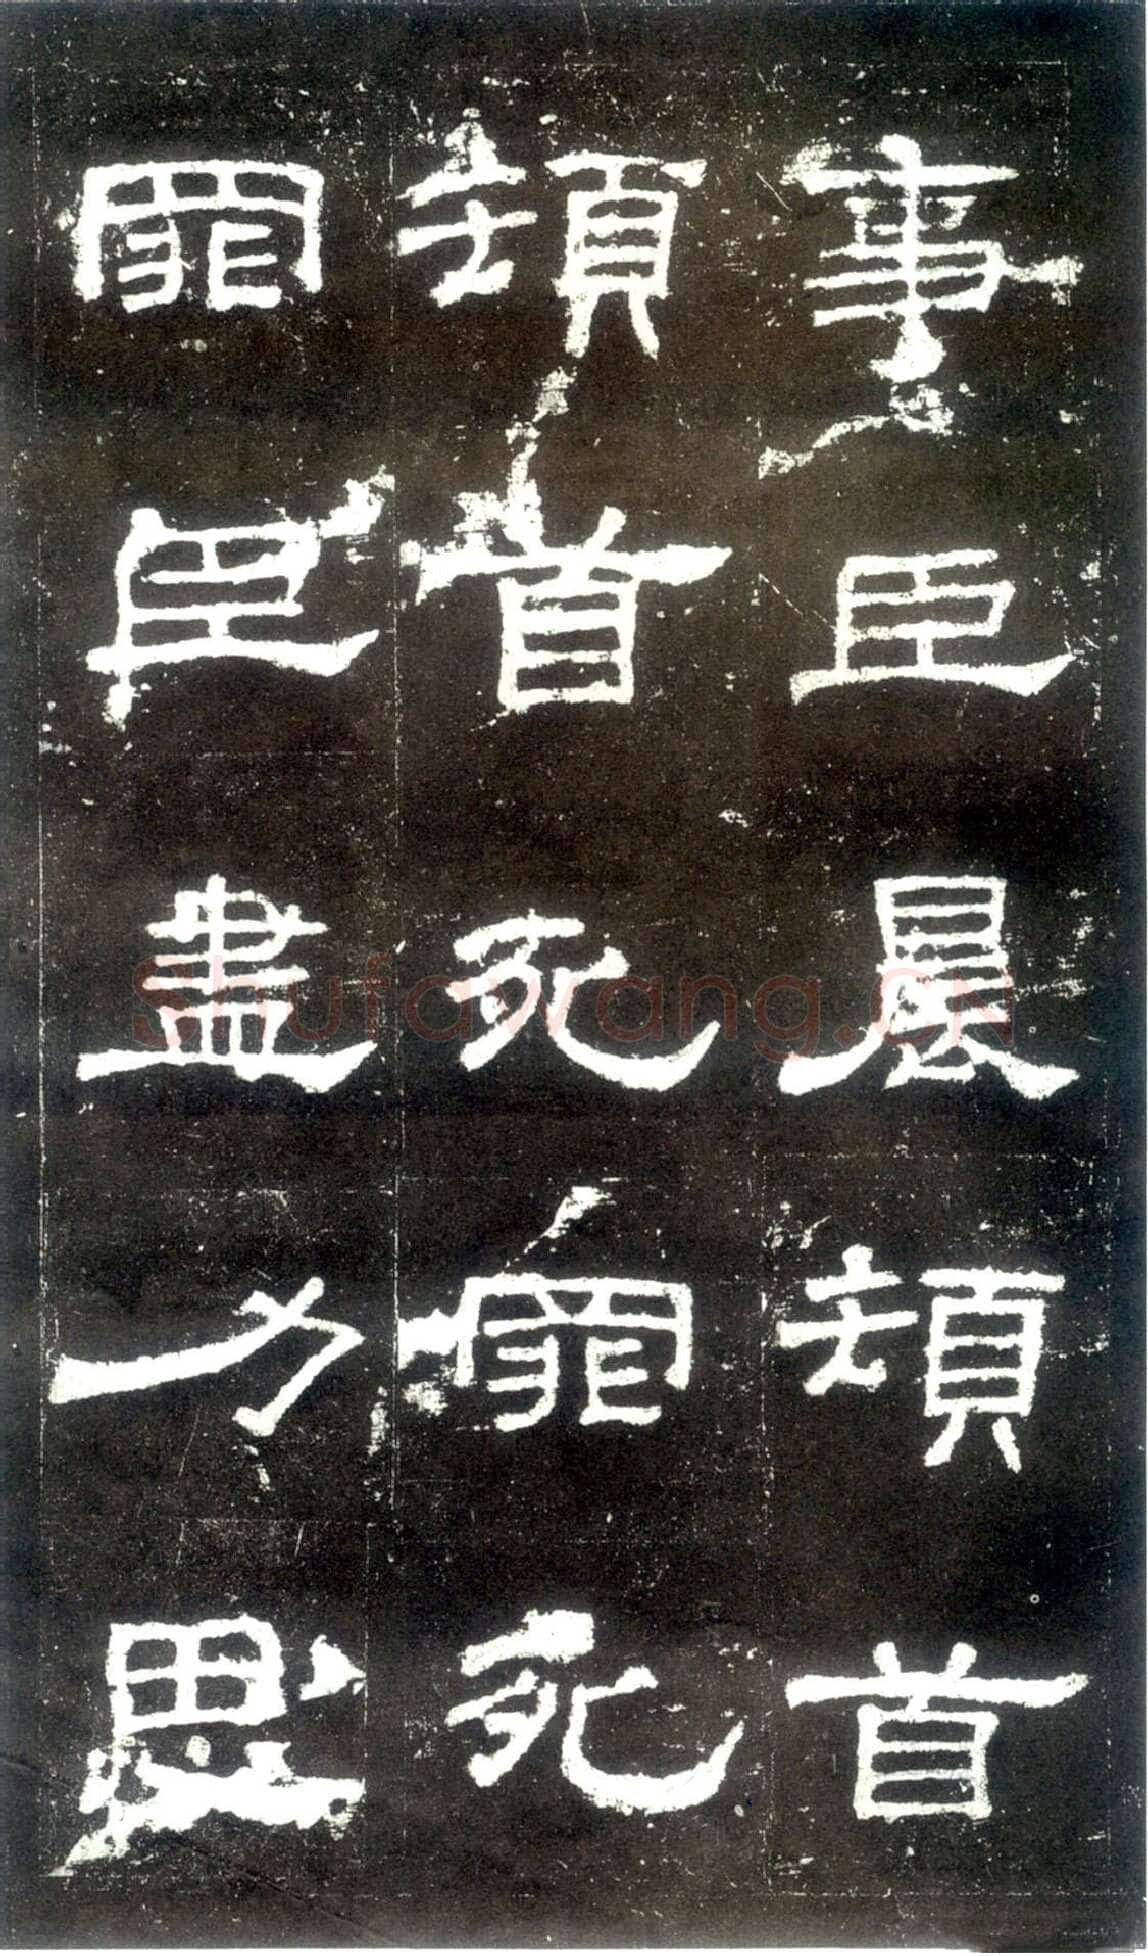 事臣晨頓首
頓首死罪死
罪臣盡力思
Shufawang.CN